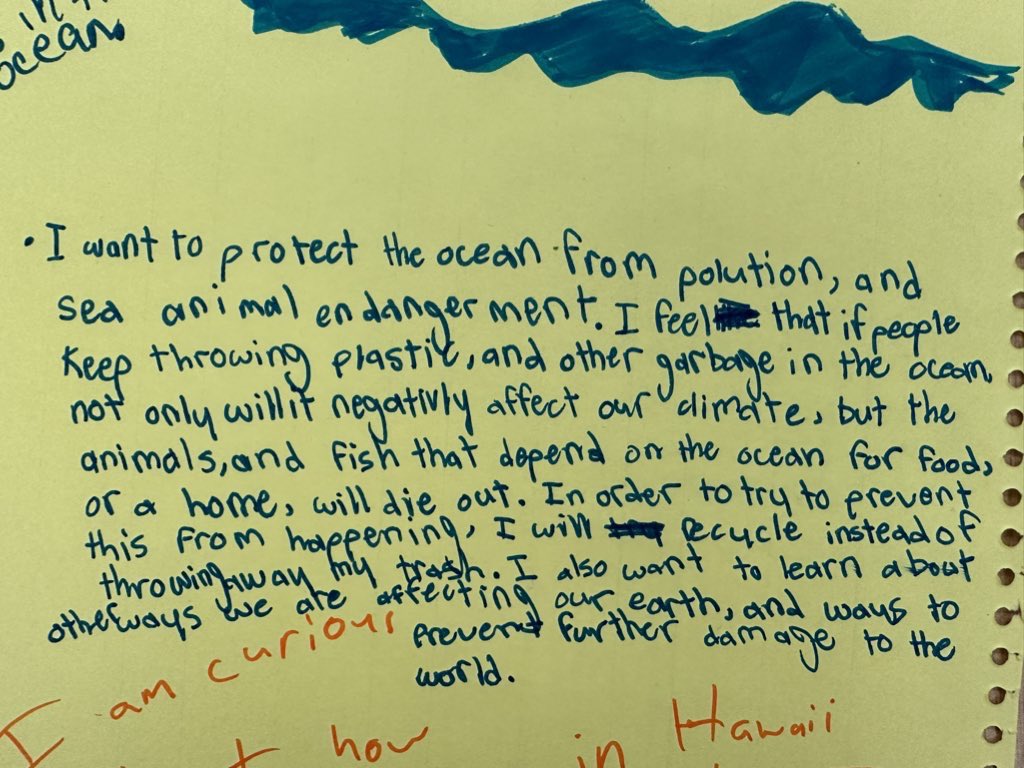 in
ocean.
• I want to protect the ocean from polution, and
sea animal endangerment. I feel that if people
keep throwing plastic, and other garbage in the ocean,
not only will it negativly affect our climate, but the
animals, and fish that depend on the ocean for food,
or a home, will die out. In order to try to prevent
this from happening, I will recycle instead of
throwing away my trash. I also want to learn about
other ways we are affecting our earth, and ways to
prevent further damage to the
world.
I am curious
how in Hawaii